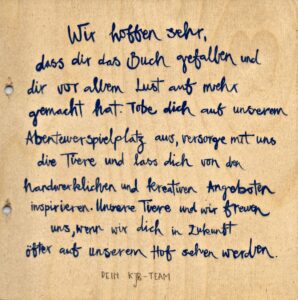 Wir hoffen sehr,
dass dir das Buch gefallen und
dir vor allem Lust auf mehr
gemacht hat. Tobe dich auf unserem
Abenteuerspielplatz aus, versorge mit uns
die Tiere und lass dich von den
handwerklichen und kreativen Angeboten
inspirieren. Unsere Tiere und wir freuen
uns, wenn wir dich in Zukunft
öfter auf unserem Hof sehen werden.
DEIN KJR-TEAM